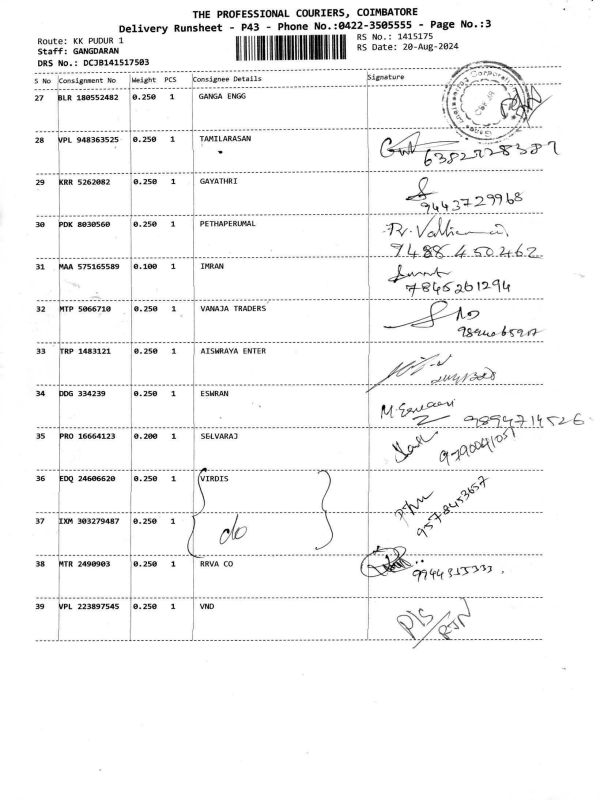 THE PROFESSIONAL COURIERS, COIMBATORE
Delivery Runsheet - P43 - Phone No.:0422-3505555 - Page No.:3
Route: KK PUDUR 1
RS No.: 1415175
Staff: GANGDARAN
RS Date: 20-Aug-2024
DRS No.: DCJB141517503
S No Consignment No Weight PCS Consignee Details Signature
27 BLR 180552482 0.250 1 GANGA ENGG
28 VPL 948363525 0.250 1 TAMILARASAN
29 KRR 5262082 0.250 1 GAYATHRI
9443729968
30 PDK 8030560 0.250 1 PETHAPERUMAL
9488450462
31 MAA 575165589 0.100 1 IMRAN
7845261294
32 MTP 5066710 0.250 1 VANAJA TRADERS
33 TRP 1483121 0.250 1 AISWRAYA ENTER
34 DDG 334239 0.250 1 ESWRAN
9894714526
35 PRO 16664123 0.200 1 SELVARAJ
36 EDQ 24606620 0.250 1 VIRDIS
9578453657
37 IXM 303279487 0.250 1 do
38 MTR 2490903 0.250 1 RRVA CO
39 VPL 223897545 0.250 1 VND